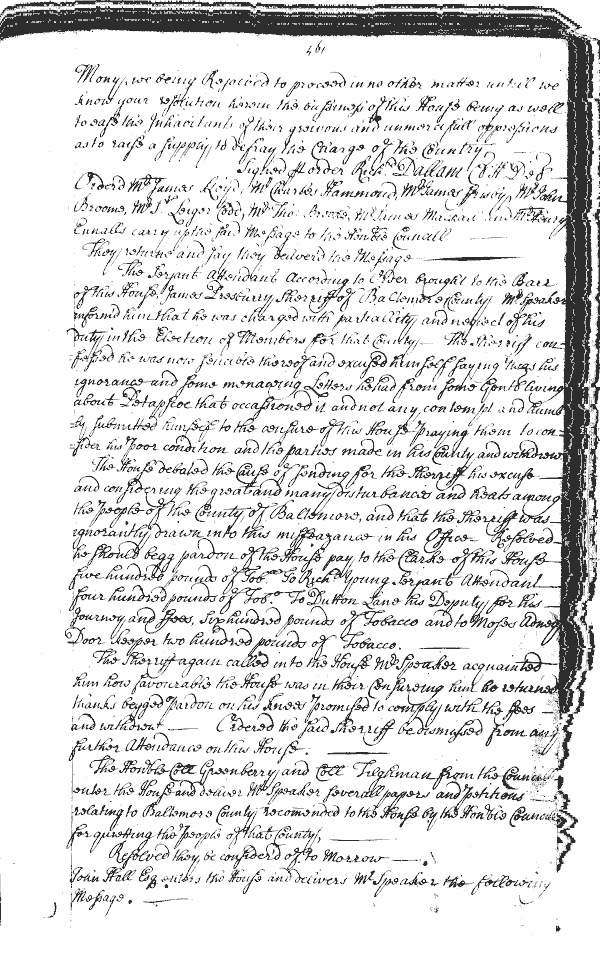 461
Mony, we being Resolved to proceed in no other matter untill we
know your resolution herein the bussiness of this House being as well
to ease the Inhabitants of their grevious and unmercifull oppressions
as to raise a supply to defray the Charge of the Country
Signed p order Richd Dallam Cl H Del
Orderd Mr James Mr Charles Hammond, Mr James Mr John
Broome, Mr St Leiger Codd, Mr Tho: Brooke, Mr James and Mr Henry
Ennalls carry up the said Message to the Honble Councill
They returne and say they deliverd the Message
The Serjant Attendant According to Order brought to the Barr
of this House, James Presburry Sherriff of Baltemore County Mr Speaker
informd him that he was charged with partiallity and neglect of his
duty in the Election of Members for that County The Sherriff con=
=fessed he was now sencible thereof and excused himself saying it was his
ignorance and some menaceing Letters he had from some Gentl living
about Petapscoe that occassioned it and not any contempt and humb
=ly submitted himself to the censure of this House praying them to con=
=sider his poor condition and the parties made in his County and withdrew
The House debated the Cause of sending for the Sherriff his excuse
and considering the great and many disturbances and heats among
the people of the County of Baltemore, and that the Sherriff was
ignorantly drawn into this misfeazance in his Office Resolved
he should begg pardon of the House pay, to the Clarke of this House
five hundred pounds of Tobo. To Richd Young Serjant Attendant
four hundred pounds of Tobo. To Dutton Lane his Deputy for his
Journey and ffees, six hundred pounds of Tobacco and to Moses Adney
Door keeper two hundred pounds of Tobacco.
The Sherriff again called in to the House Mr Speaker acquainted
him how favourable the House was in their Censureing him he returned
thanks begged pardon on his knees promised to comply with the ffees
and withdrew Ordered the said Sherriff be dismissed from any
further Attendance on this House.
The Honble Coll Greenberry and Coll Tilghman from the Council
enter the House and deliver Mr Speaker severall papers and petitions
relating to Baltemore County recomended to the House by the Honble Councill
for quieting the people of that County,
Resolved they be considerd of to Morrow
John Hall Esq enters the House and delivers Mr Speaker the following
Message.